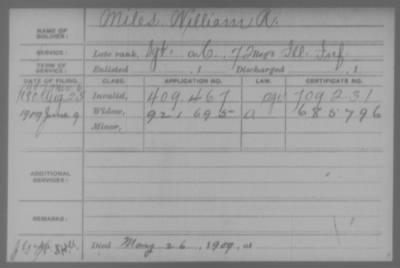 NAME OF SOLDIER: Miles, William R.
SERVICE: Late rank, Sgt. Co. C, 72 Regt Ill. Inf.
TERM OF SERVICE: Enlisted , 1 Discharged , 1
DATE OF FILING. CLASS. APPLICATION NO. LAW. CERTIFICATE NO.
Aug 23 Invalid, 409.467 709.231
1909 June 9 Widow, 921.695 a 685796
Minor,
ADDITIONAL SERVICES:
REMARKS:
Died May 26, 1909, at